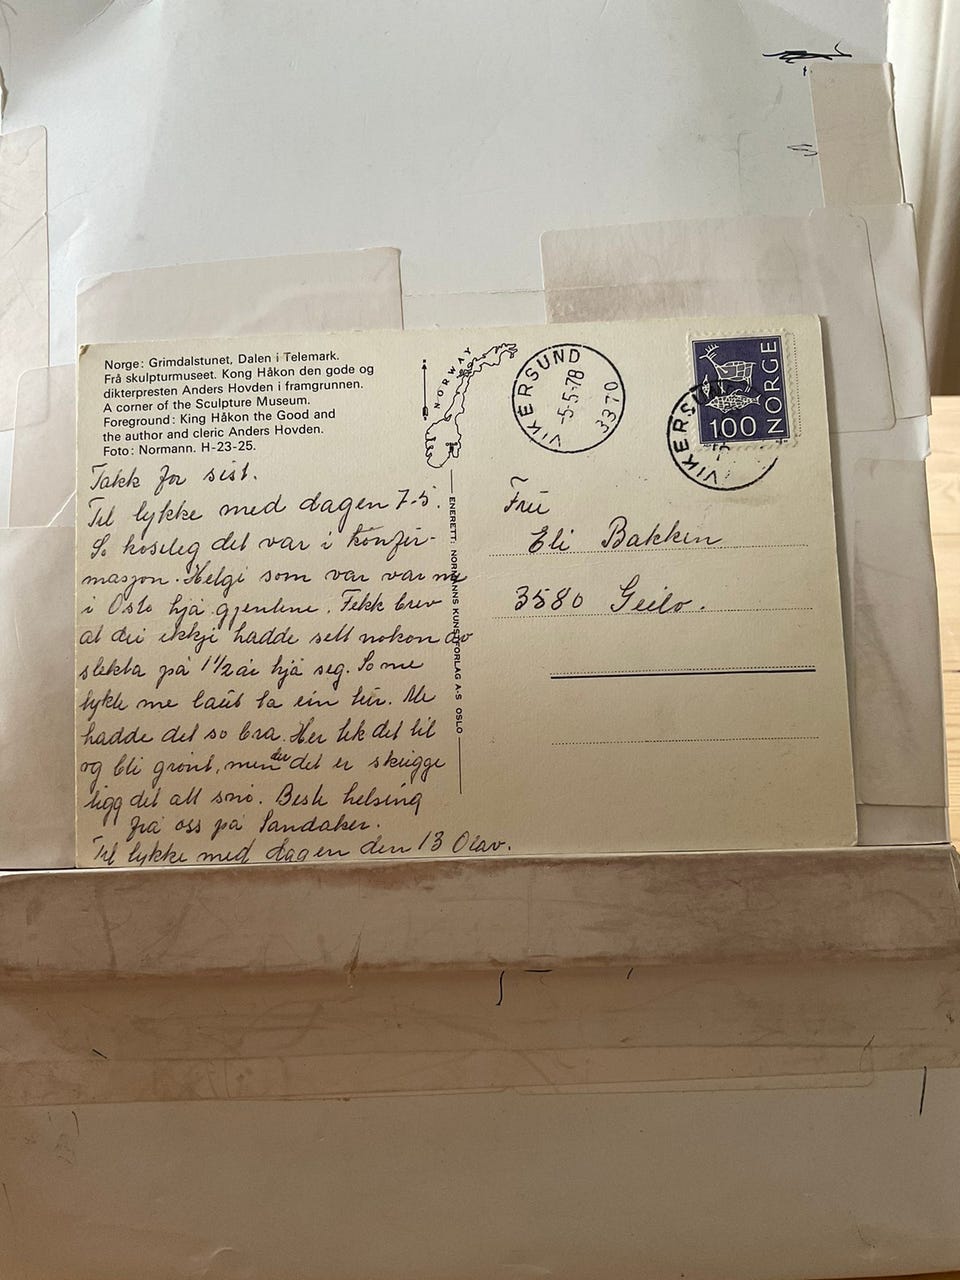 Norge: Grimdalstunet, Dalen i Telemark.
Frå skulpturmuseet. Kong Håkon den gode og
dikterpresten Anders Hovden i framgrunnen.
A corner of the Sculpture Museum.
Foreground: King Håkon the Good and
the author and cleric Anders Hovden.
Foto: Normann. H-23-25.
Takk for sist.
Til lykke med dagen 7-5.
So koseleg det var i konfir-
masjon. Helgi som var var me
i Oslo hjå gjentene. Fekk brev
at dei ikkji hadde sett nokon av
slekta på 1 1/2 år hjå seg. So me
tykte me laut ta ein tur. Me
hadde det so bra. Her tek det til
og bli grønt, men der det er skugge
ligg det att snø. Beste helsing
frå oss på Sandaker.
Til lykke med dagen den 13 Olav.
NORWAY
ENERETT: NORMANNS KUNSTFORLAG A-S OSLO
VIKERSUND
-5-5-78
3370
NORGE
100
VIKERSUN
Fru
Eli Bakken
3580 Geilo.